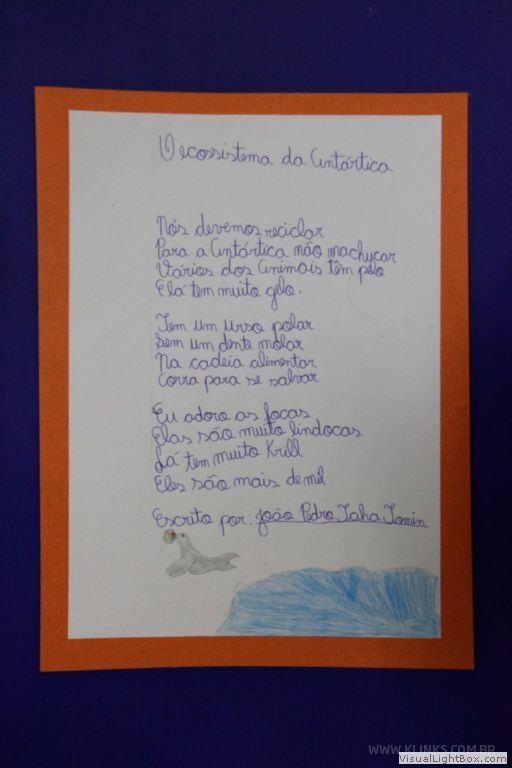 O ecossistema da Antártica
Nós devemos reciclar
Para a Antártica não machucar
Vários dos Animais têm pelo
E lá tem muito gelo.
Tem um urso polar
Sem um dente molar
Na cadeia alimentar
Corra para se salvar
Eu adoro as focas
Elas são muito lindocas
Lá tem muito Krill
Eles são mais de mil
Escrito por: João Pedro Taha Tomin
WWW.KLINKS.COM.BR
VisualLightBox.com